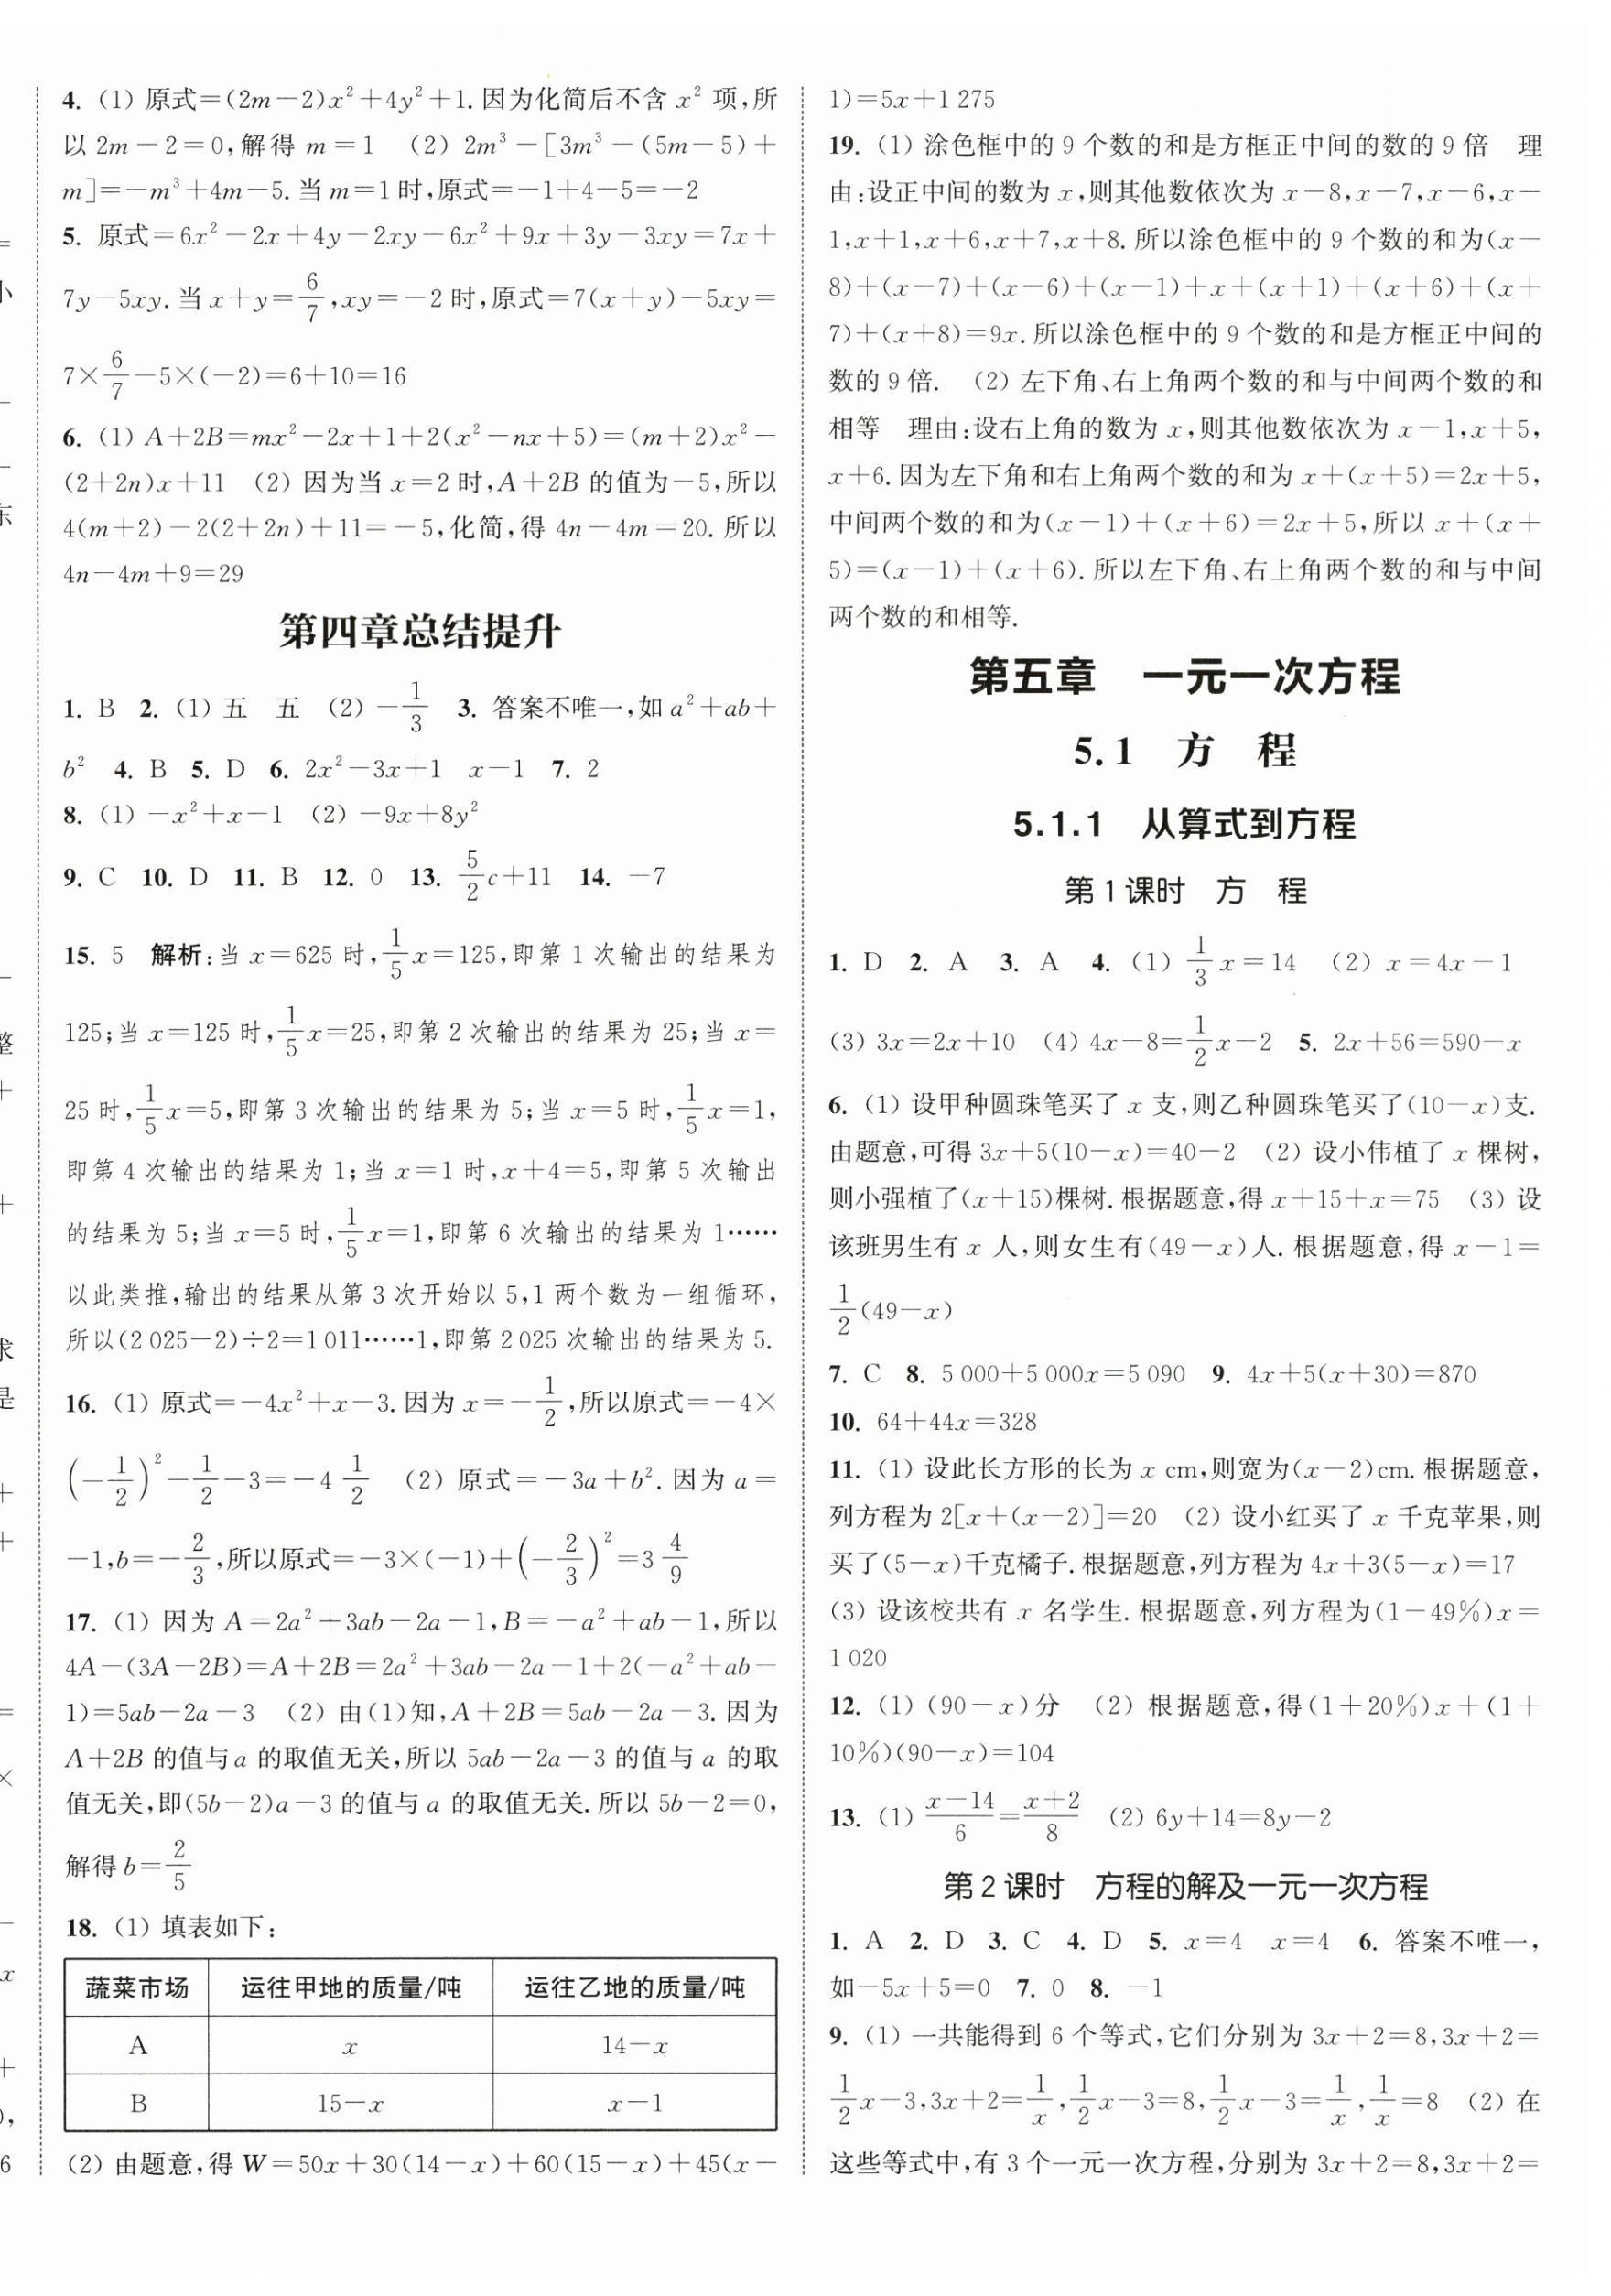 4. (1) 原式=(2m-2)x²+4y²+1. 因为化简后不含 x² 项,所
以 2m-2=0,解得 m=1 (2) 2m³-[3m³-(5m-5)+
m]=-m³+4m-5. 当 m=1 时,原式=-1+4-5=-2
5. 原式=6x²-2x+4y-2xy-6x²+9x+3y-3xy=7x+
7y-5xy. 当 x+y=6/7,xy=-2 时,原式=7(x+y)-5xy=
7×6/7-5×(-2)=6+10=16
6. (1) A+2B=mx²-2x+1+2(x²-nx+5)=(m+2)x²-
(2+2n)x+11 (2) 因为当 x=2 时,A+2B 的值为-5,所以
4(m+2)-2(2+2n)+11=-5,化简,得 4n-4m=20. 所以
4n-4m+9=29
第四章总结提升
1. B 2. (1) 五 五 (2) -1/3 3. 答案不唯一,如 a²+ab+
b² 4. B 5. D 6. 2x²-3x+1 x-1 7. 2
8. (1) -x²+x-1 (2) -9x+8y²
9. C 10. D 11. B 12. 0 13. 5/2c+11 14. -7
15. 5 解析:当 x=625 时,1/5x=125,即第 1 次输出的结果为
125;当 x=125 时,1/5x=25,即第 2 次输出的结果为 25;当 x=
25 时,1/5x=5,即第 3 次输出的结果为 5;当 x=5 时,1/5x=1,
即第 4 次输出的结果为 1;当 x=1 时,x+4=5,即第 5 次输出
的结果为 5;当 x=5 时,1/5x=1,即第 6 次输出的结果为 1……
以此类推,输出的结果从第 3 次开始以 5,1 两个数为一组循环,
所以(2 025-2)÷2=1 011……1,即第 2 025 次输出的结果为 5.
16. (1) 原式=-4x²+x-3. 因为 x=-1/2,所以原式=-4×
(-1/2)²-1/2-3=-4 1/2 (2) 原式=-3a+b². 因为 a=
-1,b=-2/3,所以原式=-3×(-1)+(-2/3)²=3 4/9
17. (1) 因为 A=2a²+3ab-2a-1,B=-a²+ab-1,所以
4A-(3A-2B)=A+2B=2a²+3ab-2a-1+2(-a²+ab-
1)=5ab-2a-3 (2) 由(1)知,A+2B=5ab-2a-3. 因为
A+2B 的值与 a 的取值无关,所以 5ab-2a-3 的值与 a 的取
值无关,即(5b-2)a-3 的值与 a 的取值无关. 所以 5b-2=0,
解得 b=2/5
18. (1) 填表如下:
蔬菜市场 运往甲地的质量/吨 运往乙地的质量/吨
A x 14-x
B 15-x x-1
(2) 由题意,得 W=50x+30(14-x)+60(15-x)+45(x-
1)=5x+1 275
19. (1) 涂色框中的 9 个数的和是方框正中间的数的 9 倍 理
由:设正中间的数为 x,则其他数依次为 x-8,x-7,x-6,x-
1,x+1,x+6,x+7,x+8. 所以涂色框中的 9 个数的和为(x-
8)+(x-7)+(x-6)+(x-1)+x+(x+1)+(x+6)+(x+
7)+(x+8)=9x. 所以涂色框中的 9 个数的和是方框正中间的
数的 9 倍. (2) 左下角、右上角两个数的和与中间两个数的和
相等 理由:设右上角的数为 x,则其他数依次为 x-1,x+5,
x+6. 因为左下角和右上角两个数的和为 x+(x+5)=2x+5,
中间两个数的和为(x-1)+(x+6)=2x+5,所以 x+(x+
5)=(x-1)+(x+6). 所以左下角、右上角两个数的和与中间
两个数的和相等.
第五章 一元一次方程
5.1 方 程
5.1.1 从算式到方程
第 1 课时 方 程
1. D 2. A 3. A 4. (1) 1/3x=14 (2) x=4x-1
(3) 3x=2x+10 (4) 4x-8=1/2x-2 5. 2x+56=590-x
6. (1) 设甲种圆珠笔买了 x 支,则乙种圆珠笔买了(10-x)支.
由题意,可得 3x+5(10-x)=40-2 (2) 设小伟植了 x 棵树,
则小强植了(x+15)棵树. 根据题意,得 x+15+x=75 (3) 设
该班男生有 x 人,则女生有(49-x)人. 根据题意,得 x-1=
1/2(49-x)
7. C 8. 5 000+5 000x=5 090 9. 4x+5(x+30)=870
10. 64+44x=328
11. (1) 设此长方形的长为 x cm,则宽为(x-2)cm. 根据题意,
列方程为 2[x+(x-2)]=20 (2) 设小红买了 x 千克苹果,则
买了(5-x)千克橘子. 根据题意,列方程为 4x+3(5-x)=17
(3) 设该校共有 x 名学生. 根据题意,列方程为(1-49%)x=
1 020
12. (1) (90-x)分 (2) 根据题意,得(1+20%)x+(1+
10%)(90-x)=104
13. (1) (x-14)/6=(x+2)/8 (2) 6y+14=8y-2
第 2 课时 方程的解及一元一次方程
1. A 2. D 3. C 4. D 5. x=4 x=4 6. 答案不唯一,
如-5x+5=0 7. 0 8. -1
9. (1) 一共能得到 6 个等式,它们分别为 3x+2=8,3x+2=
1/2x-3,3x+2=1/x,1/2x-3=8,1/2x-3=1/x,1/x=8 (2) 在
这些等式中,有 3 个一元一次方程,分别为 3x+2=8,3x+2=